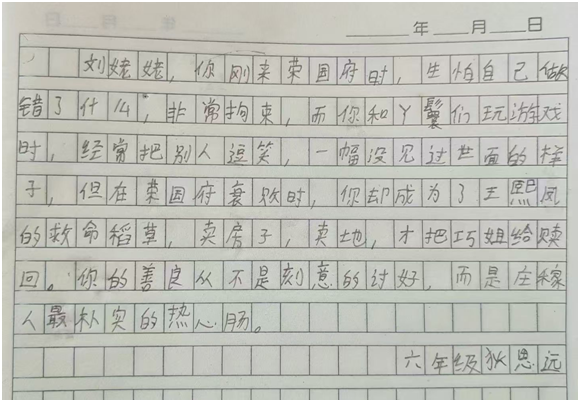 年 月 日
刘姥姥，你刚来荣国府时，生怕自己做
错了什么，非常拘束，而你和丫鬟们玩游戏
时，经常把别人逗笑，一幅没见过世面的样
子，但在荣国府衰败时，你却成为了王熙凤
的救命稻草，卖房子，卖地，才把巧姐给赎
回。你的善良从不是刻意的讨好，而是庄稼
人最朴实的热心肠。
六年级狄思远